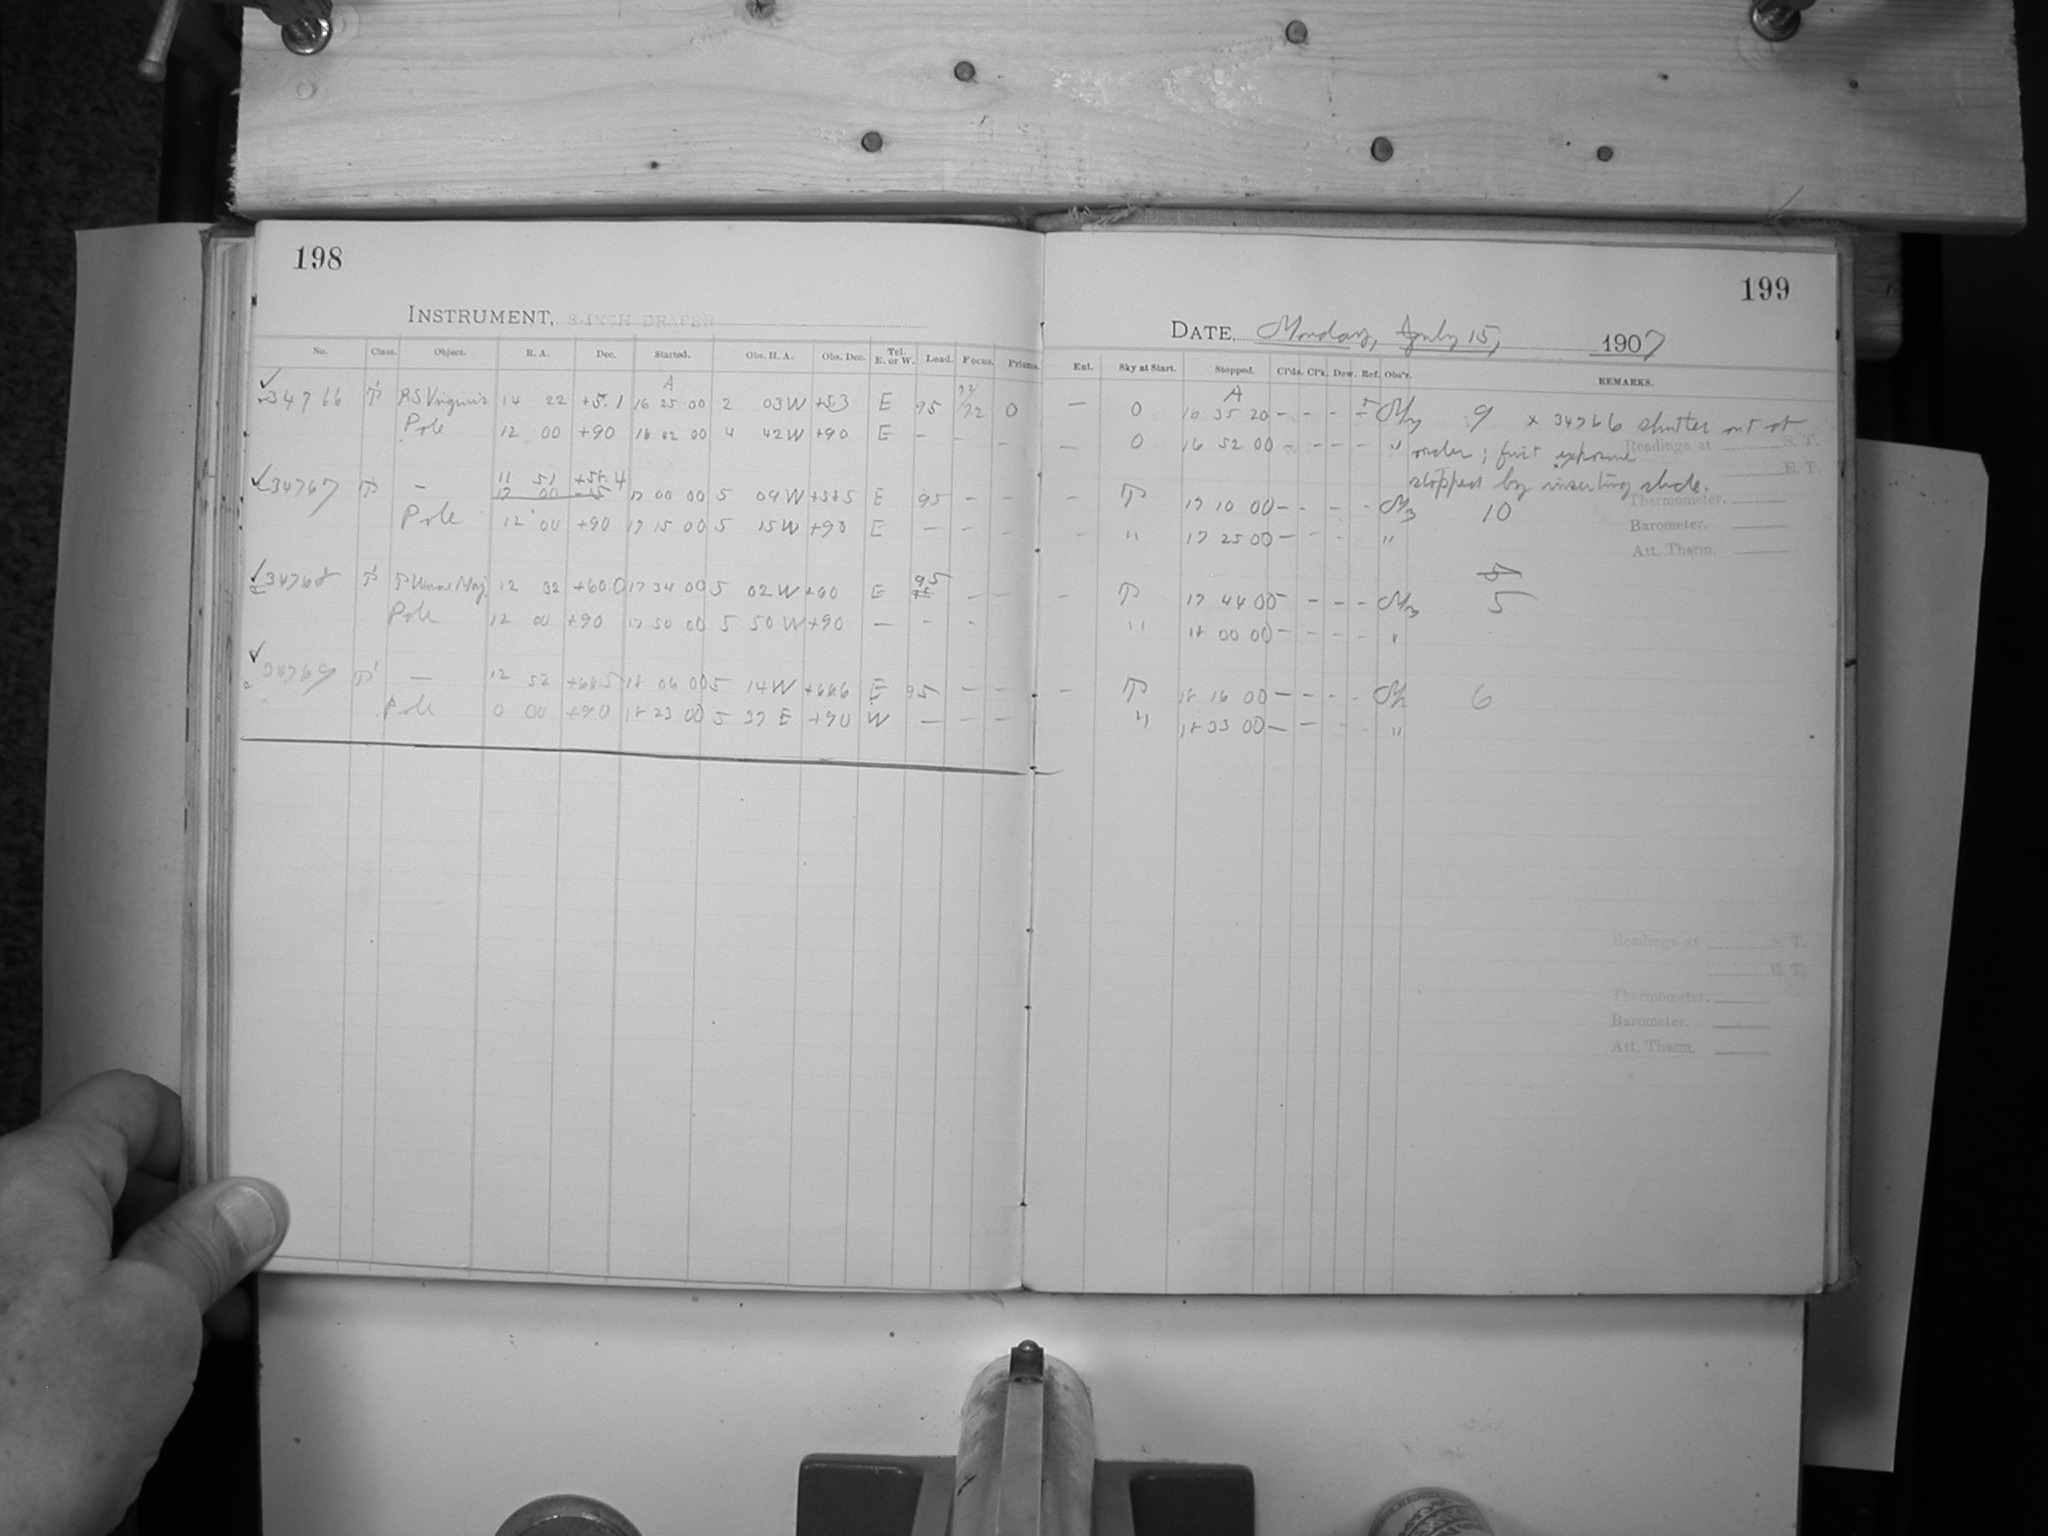 198
INSTRUMENT, 8-INCH DRAPER
No. Class. Object. R. A. Dec. Started. Obs. H. A. Obs. Dec. Tel. E. or W. Load. Focus. Prisms.
A
34766 RS Virginis 14 22 +5.1 16 25 00 2 03 W +5.3 E 95 7.2 0
Pole 12 00 +90 16 42 00 4 42 W +90 E — - —
11 51 +58.4
34767 — 12 00 17 00 00 5 09 W +58.5 E 95 - -
Pole 12 00 +90 17 15 00 5 15 W +90 E — - -
34768 T Ursae Maj. 12 32 +60.0 17 34 00 5 02 W +60 E 95 - -
Pole 12 00 +90 17 50 00 5 50 W +90 — - -
34769 — 12 52 +66.5 18 06 00 5 14 W +66.6 E 95 - -
Pole 0 00 +90 18 23 00 5 37 E +90 W — - -
199
DATE, Monday, July 15, 1907
Enl. Sky at Start. Stopped. Cl'ds. Cl'k. Dew. Ref. Obs'r. REMARKS.
A
— 0 16 35 20 - - - - 9 x 34766 shutter out of
— 0 16 52 00 - - - - " order; first exposure
stopped by inserting slide.
- 17 10 00 - - - - 10
- " 17 25 00 - - - "
5
- 17 44 00 - - - - 5
" 18 00 00 - - - - "
- 18 16 00 - - - - 6
" 18 33 00 - - - "
Readings at S. T.
E. T.
Thermometer.
Barometer.
Att. Therm.
Readings at S. T.
E. T.
Thermometer.
Barometer.
Att. Therm.